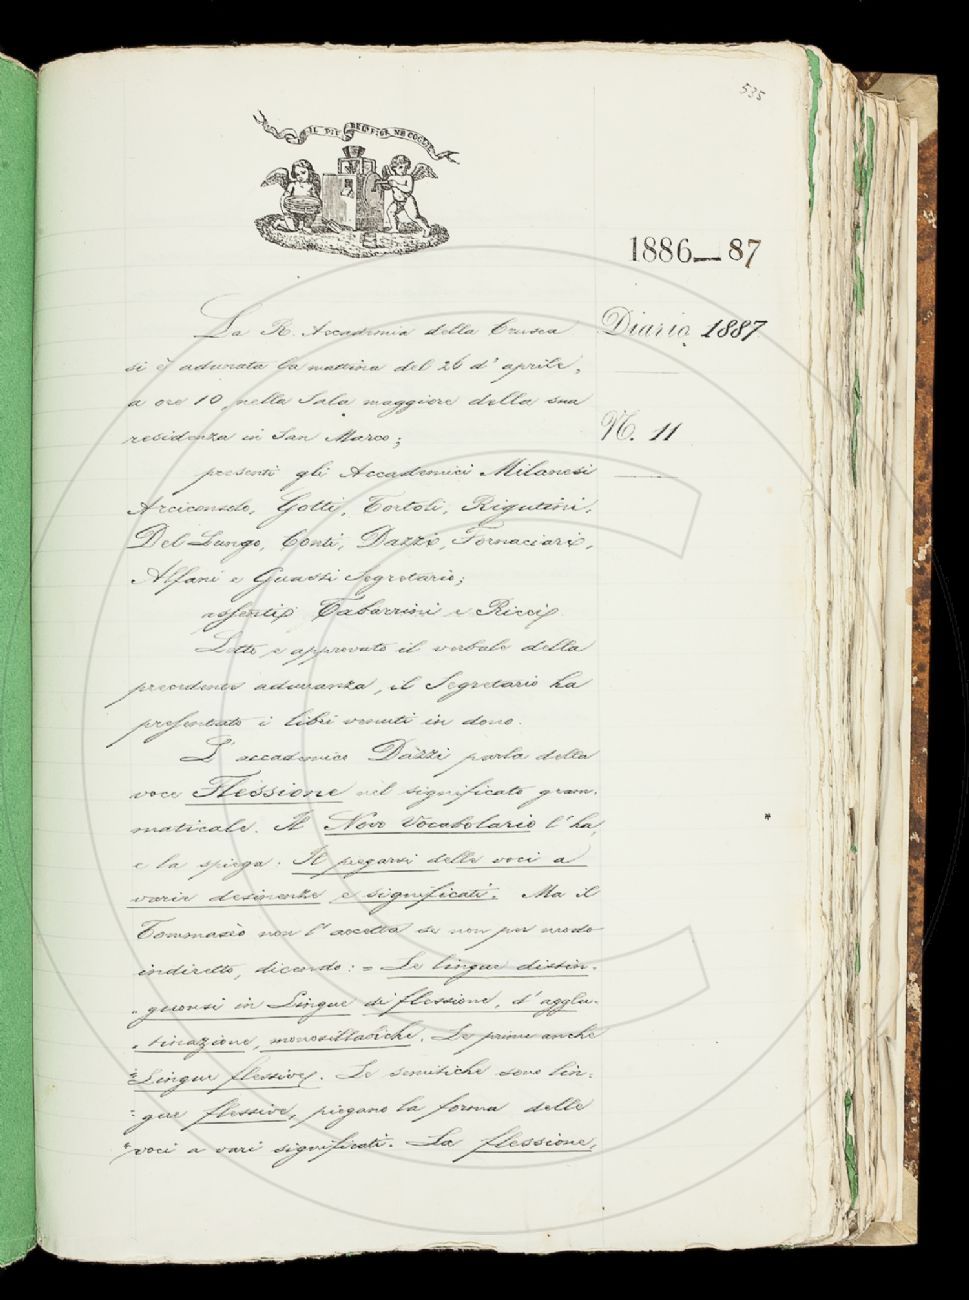 535
IL PIÙ BEL FIOR NE COGLIE
1886_87
Diario 1887
N. 11
La R. Accademia della Crusca
si è adunata la mattina del 26 d'aprile,
a ore 10, nella Sala maggiore della sua
residenza in San Marco;
presenti gli Accademici Milanesi
Arciconsolo, Gotti, Tortoli, Rigutini,
Del Lungo, Conti, Dazzi, Fornaciari,
Alfani e Guasti Segretario;
assenti Tabarrini e Ricci.
Letto e approvato il verbale della
precedente adunanza, il Segretario ha
presentato i libri venuti in dono.
L'accademico Dazzi parla della
voce Flessione nel significato gram-
maticale. Il Novo Vocabolario l'ha,
e la spiega: Il piegarsi delle voci a
varie desinenze e significati. Ma il
Tommasèo non l'accetta se non per modo
indiretto, dicendo: = Le lingue distin-
guonsi in Lingue di flessione, d'agglu-
tinazione, monosillabiche. Le prime anche
Lingue flessive. Le semitiche sono lin-
gue flessive, piegano la forma delle
voci a vari significati. La flessione,